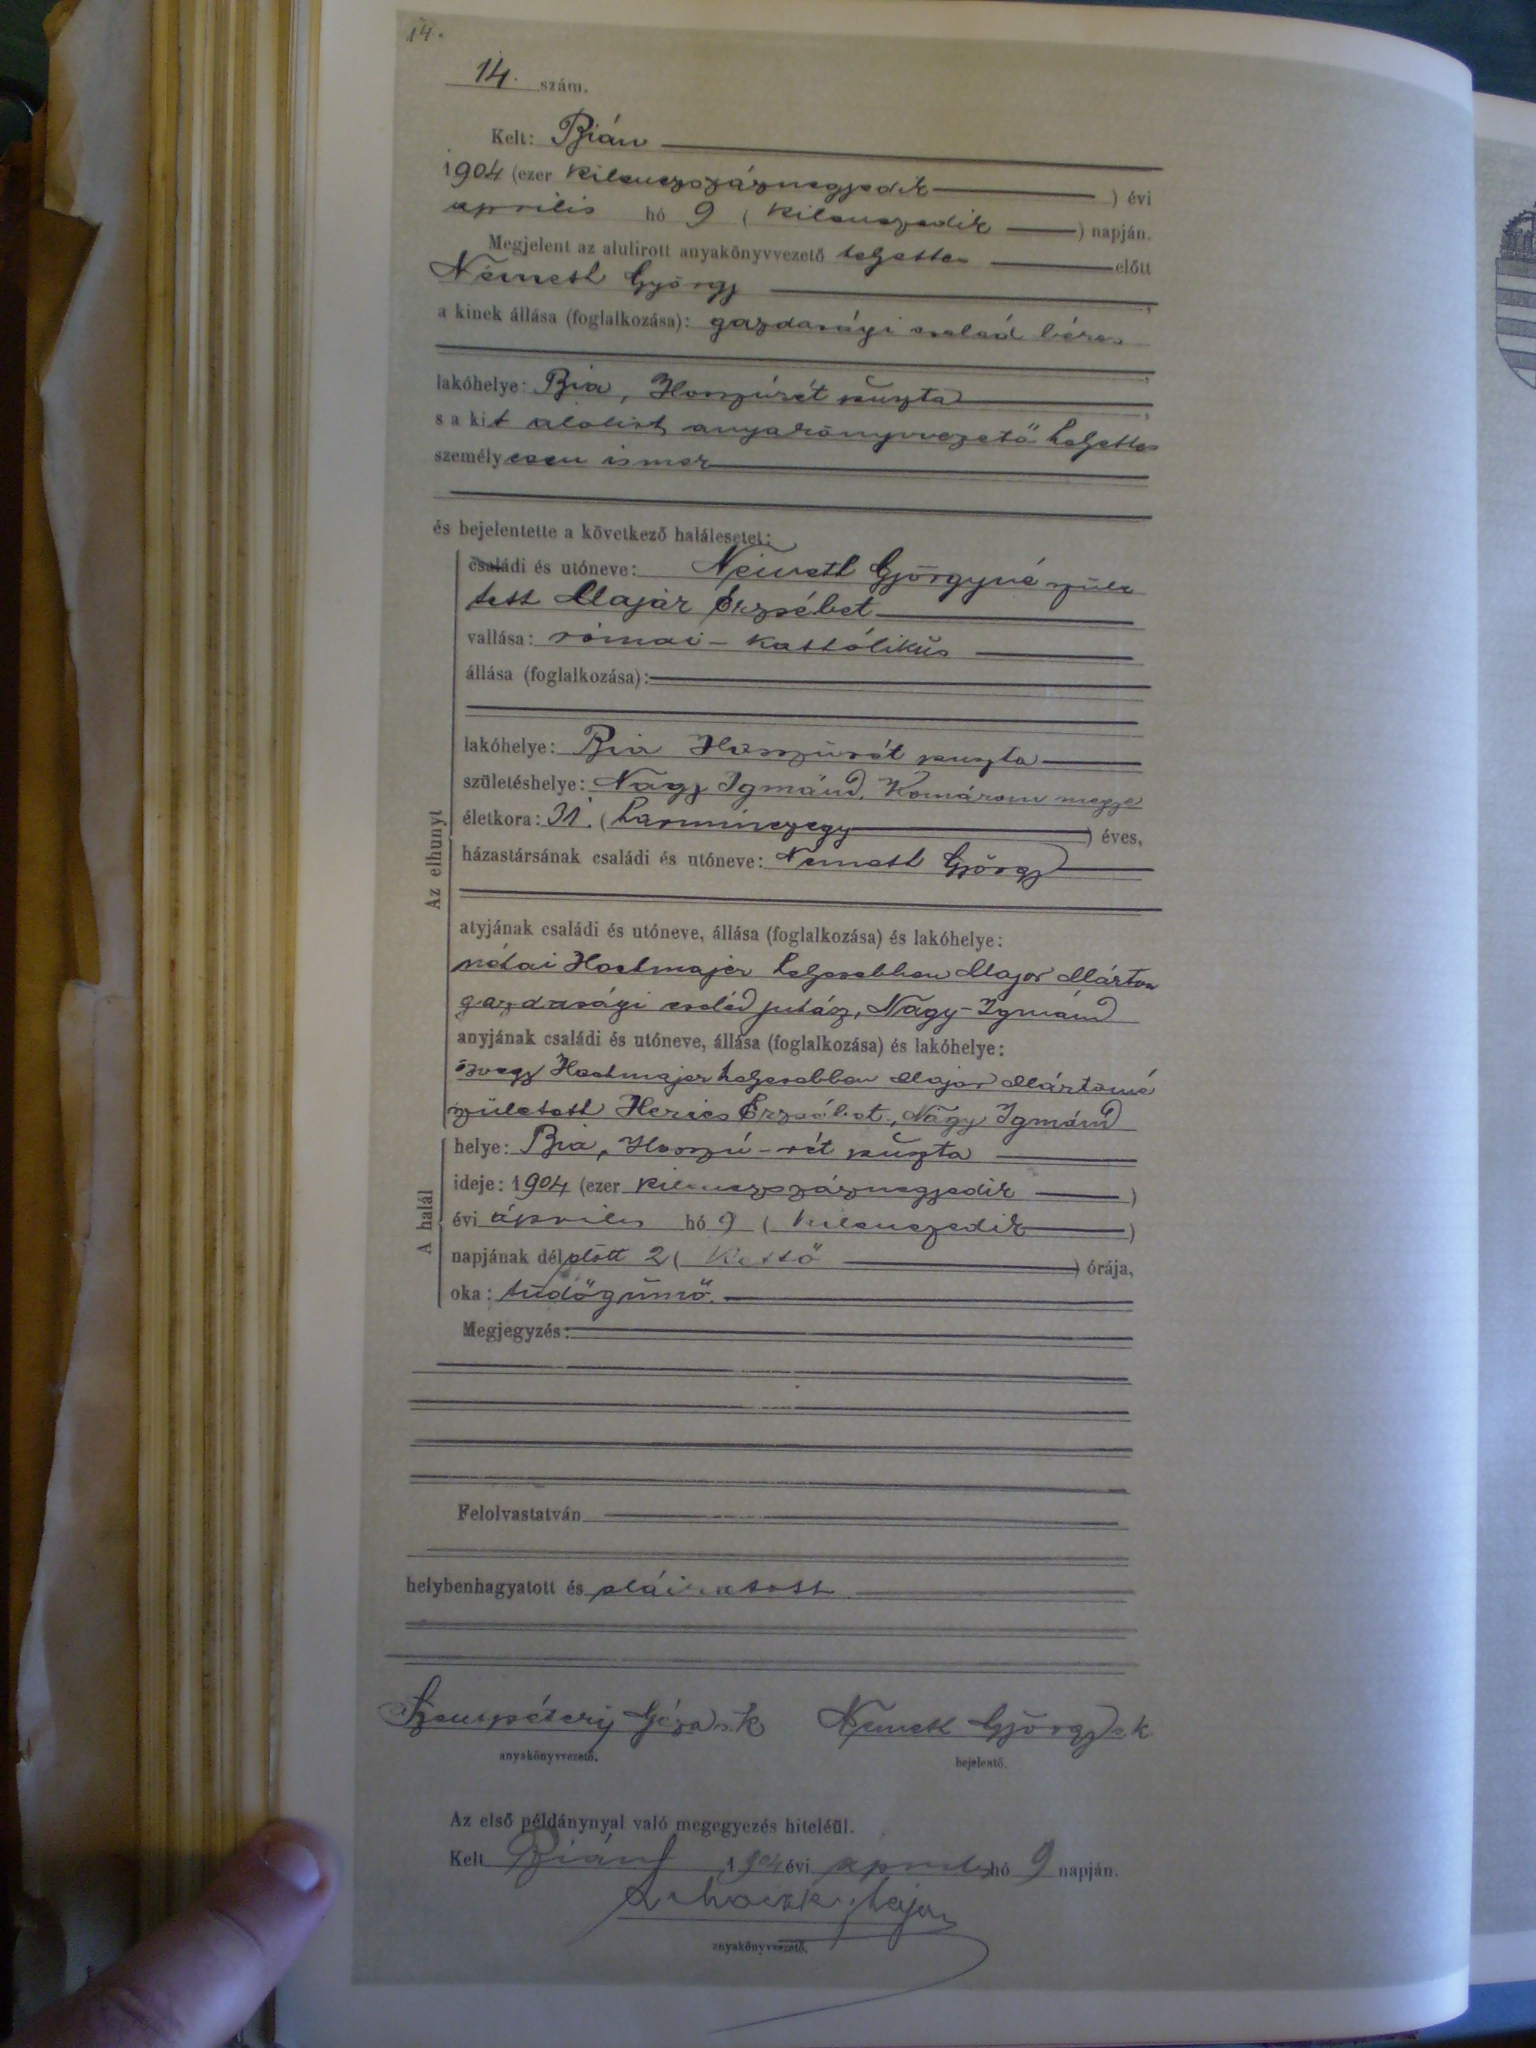 14.
14. szám.
Kelt: Bián
1904 (ezer kilenczszáznegyedik) évi
április hó 9 (kilenczedik) napján.
Megjelent az alulirott anyakönyvvezető helyettes előtt
Németh György,
a kinek állása (foglalkozása): gazdasági cseléd béres
lakóhelye: Bia, Hosszúrét puszta,
s a kit alólirt anyakönyvvezető helyettes
személyesen ismer
és bejelentette a következő halálesetet:
családi és utóneve: Németh Györgyné szüle
tett Majár Erzsébet
vallása: római-kattólikus
állása (foglalkozása):
lakóhelye: Bia Hosszúrét puszta
születéshelye: Nagy Igmánd, Komárom megye
életkora: 31. (harminczegy) éves,
házastársának családi és utóneve: Németh György
Az elhunyt
atyjának családi és utóneve, állása (foglalkozása) és lakóhelye:
néhai helyesebben Major Márton
gazdasági cseléd juhász, Nagy-Igmánd
anyjának családi és utóneve, állása (foglalkozása) és lakóhelye:
özvegy helyesebben Major Mártonné
született Erzsébet, Nagy Igmánd
A halál
helye: Bia, Hosszú-rét puszta
ideje: 1904 (ezer kilenczszáznegyedik)
évi április hó 9 (kilenczedik)
napjának délelőtt 2 (kettő) órája,
oka: tüdőgümő.
Megjegyzés:
Felolvastatván
helybenhagyatott és aláiratott
Szentpétery Géza s. k. Németh György s. k.
anyakönyvvezető. bejelentő.
Az első példánynyal való megegyezés hiteléül.
Kelt Bián 1904 évi április hó 9 napján.
anyakönyvvezető.